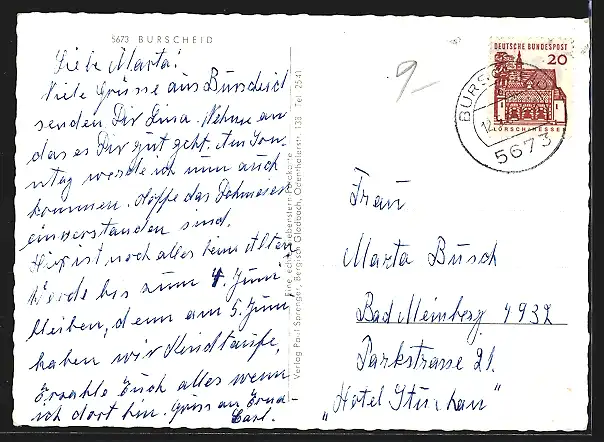 5673 BURSCHEID
Liebe Marta!
Viele Grüsse aus Burscheid
senden Dir Lina. Nehme an
das es Dir gut geht. Am Son-
tag werde ich nun auch
kommen. Hoffe das
einverstanden sind.
Hier ist noch alles beim Alten
Werde bis zum 4. Juni
bleiben, denn am 5. Juni
haben wir Kindtaufe,
Erzähle Euch alles wenn
ich dort bin. Gruss an Erna
Carl.
Eine echte Ebenstern-Postkarte
Verlag Paul Sprenger, Bergisch Gladbach, Odenthalerstr. 133 Tel. 2541
9-
DEUTSCHE BUNDESPOST
20
LORSCH/HESSEN
5673
Frau
Marta Busch
Bad Meinberg 4932
Parkstrasse 21.
"Hotel